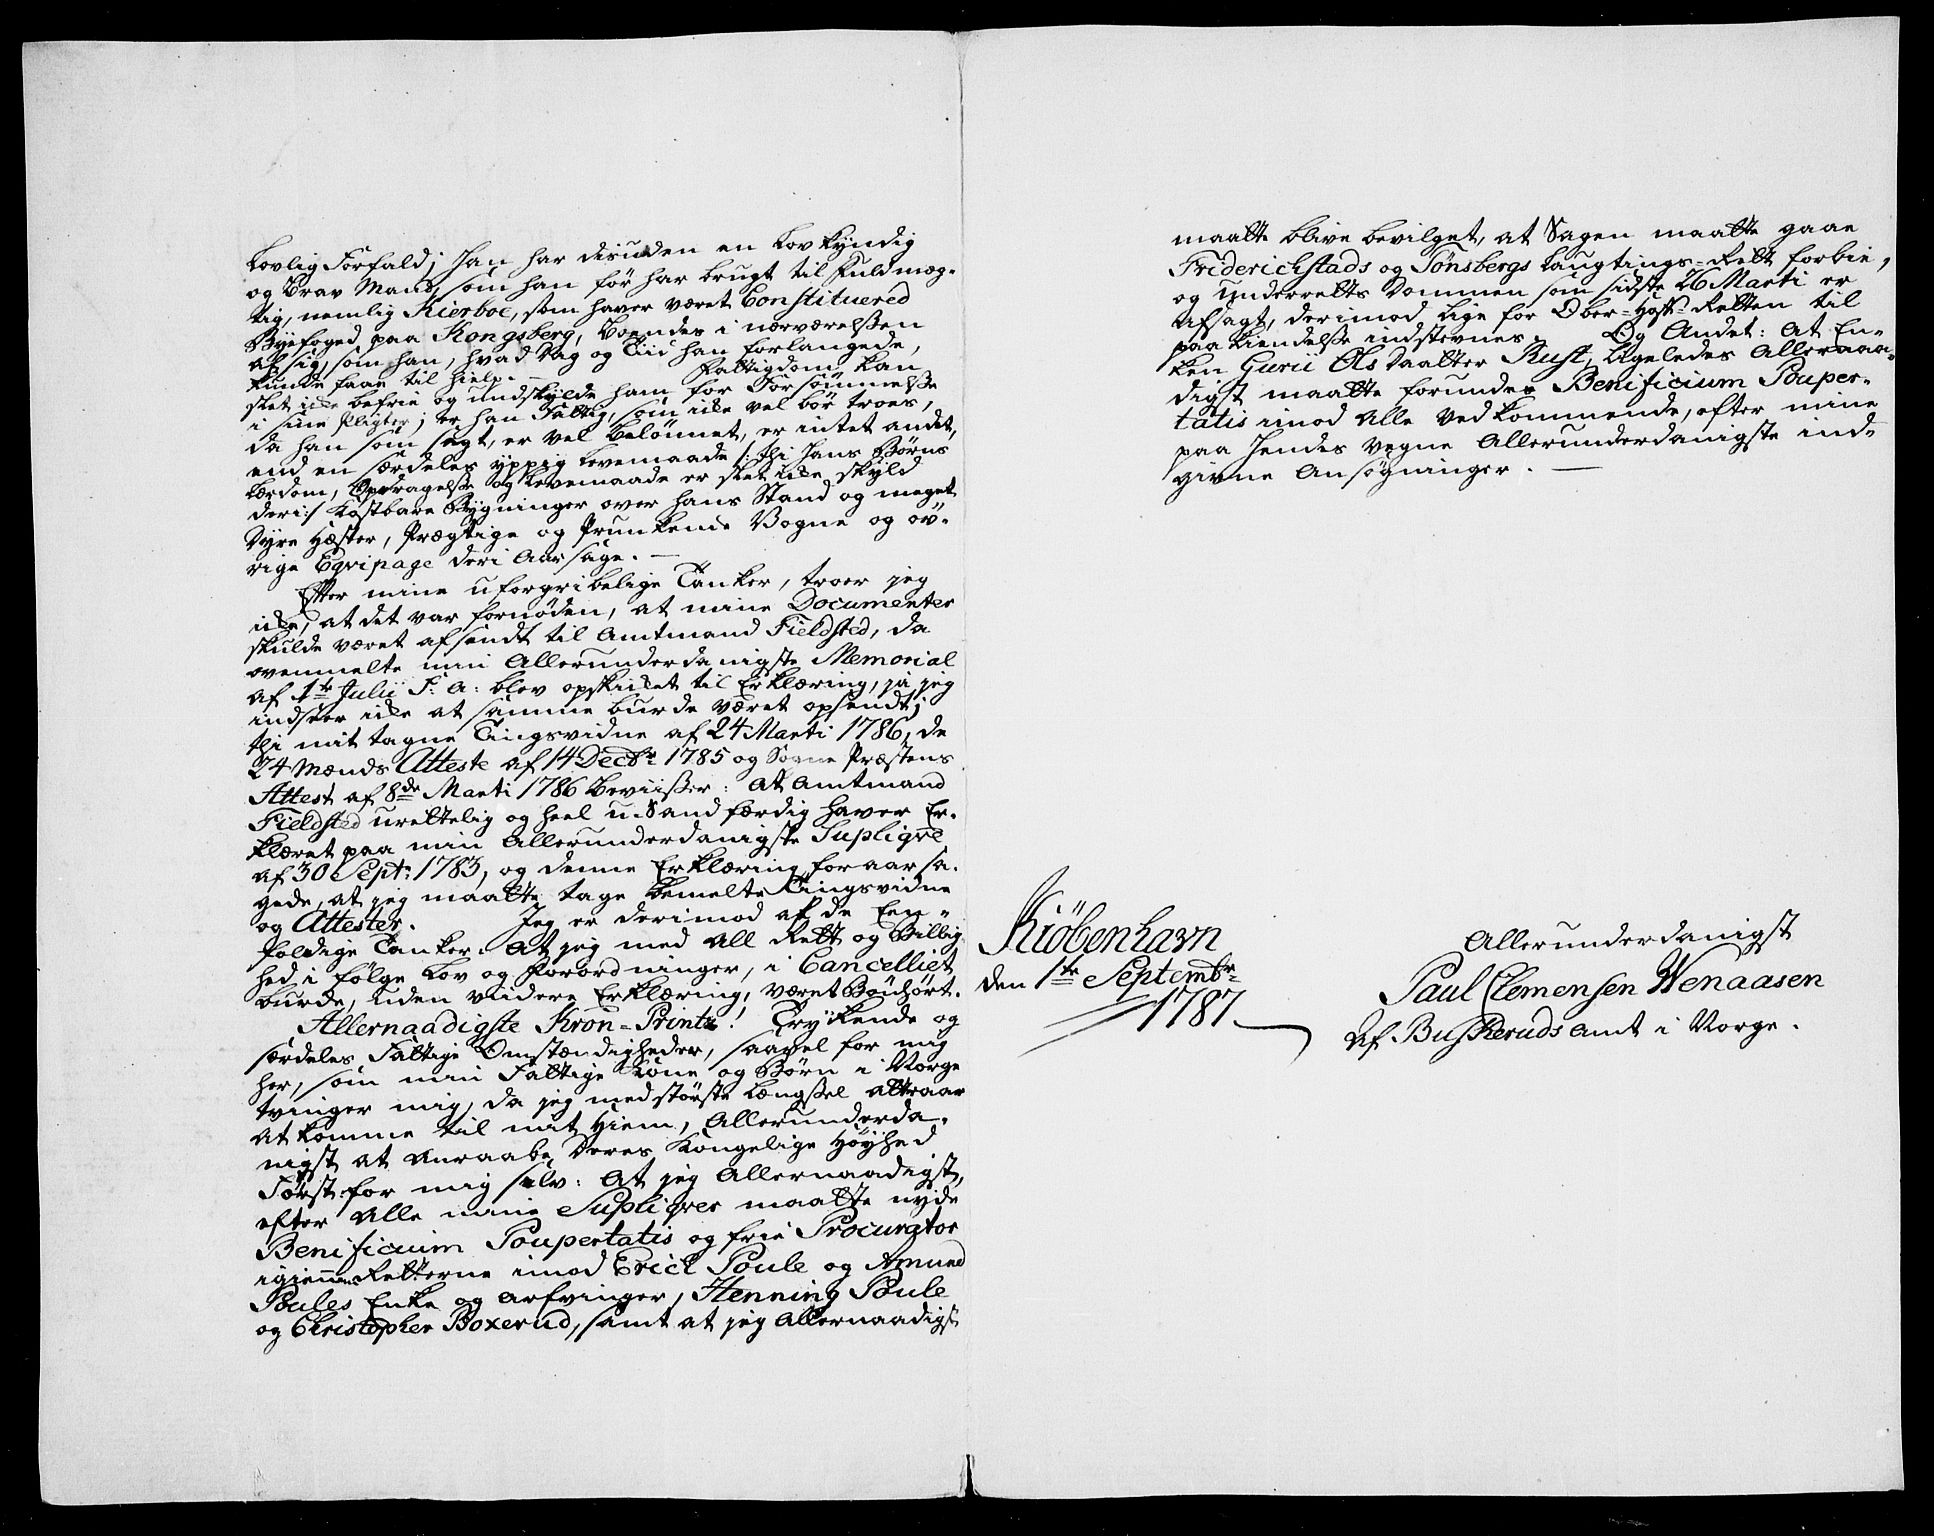 Lovlig Forfald; Han har disuden en Lov kyndig
og brav Mand, som han før har brugt til Fuldmæg-
tig, nemlig Kierboe, som haver været Constituered
Byefoged paa Kongsberg, boendes i nærværelsen
af sig, som han, hvad Dag og Tiid han forlangede,
kunde faae til hielp. — Fattigdom kan
slet icke befrie og undskylde ham for Forsømmelse
i sine Pligter; er han Fattig, som icke vel bør troes,
da han som sagt, er vel belønnet, er intet andet,
end en særdeles yppig Levemaade /: thi Hans Børns
Lærdom, Opdragelse og Levemaade er slet icke skyld
deri :/ kostbare Bygninger over hans Stand og meget
Dyre Hæster, Prægtige og Prunkende Vogne og øv-
rige Eqvipage deri Aarsage. —
Efter mine uforgribelige Tanker, troer jeg
icke, at det var fornøden, at mine Documenter
skulde været afsendt til Amtmand Fieldsted, da
ovenmelte min Allerunderdanigste Memorial
af 1te Julii F: A: blev opskicket til Erklæring, ja jeg
indseer icke at samme burde været opsendt;
thi mit tagne Tingsvidne af 24 Marti 1786, de
24 Mænds Atteste af 14 Decbr 1785 og Sogne Præstens
Attest af 8de Marti 1786 beviisser: at Amtmand
Fieldsted urettelig og heel u-Sandfærdig haver Er-
klæret paa min Allerunderdanigste Supliqve
af 30 Septr 1783, og denne Erklæring foraarsa-
gede, at jeg maatte tage bemelte Tingsvidne
og Attester. Jeg er derimod af de Een-
foldige Tanker: at jeg med all Rett og Billig-
hed i følge Lov og Forordninger, i Cancelliet
burde, uden viidere Erklæring, været Bønhørt.
Allernaadigste Kron-Printz! Tryckende og
særdeles Fattige Omstændigheder, saavel for mig
her, som min Fattige Kone og Børn i Norge
tvinger mig, da jeg med største Længsel attraar
at komme til mit Hiem, Allerunderda-
nigst at anraabe Deres Kongelige Høyhed
Først for mig selv: At jeg Allernaadigst,
efter alle mine Supliqver maatte nyde
Benificium Poupertatis og frie Procurator
igiennem Retterne imod Erick Poule og Amund
Poules Enke og Arfvinger, Henning Poule
og Christopher Boxerud, samt at jeg Allernaadigst
maatte blive bevilget, at Sagen maatte gaae
Friderichstads og Tønsbergs Laugtings-Rett forbie,
og Underretts Dommen som sidste 26 Marti er
Afsagt, derimod lige for Ober-Hoff-Retten til
paakiendelse indstevnes. Og Andet: At En-
ken Gurii Ols Daatter Rust, ligeledes Allernaa-
digst maatte forundes Benificium Pouper-
tatis imod Alle vedkommende, efter mine
paa Hendes vegne Allerunderdanigste ind-
givne Ansøgninger. —
Kiöbenhavn
den 1te Septembr
1787
Allerunderdanigst
Paul Clemensen Wenaasen
Af Buskeruds Amt i Norge.